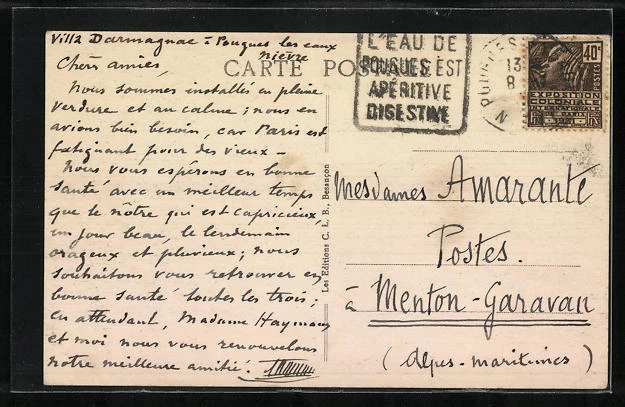 Villa Darmagnac à Pougues les eaux
Nièvre
Chers amies,
Nous sommes installés en pleine
verdure et au calme ; nous en
avions bien besoin, car Paris est
fatiguant pour des vieux –
Nous vous espérons en bonne
santé avec un meilleur temps
que le nôtre qui est capricieux,
un jour beau, le lendemain
orageux et pluvieux ; nous
souhaitons vous retrouver en
bonne santé toutes les trois ;
en attendant, Madame Haymann
et moi nous vous renouvelons
notre meilleure amitié.
CARTE POSTALE
L'EAU DE
POUGUES EST
APÉRITIVE
DIGESTIVE
POUGUES
13
8
N
40c
POSTES
EXPOSITION
COLONIALE
INTERNATIONALE
RF
Les Editions C. L. B., Besançon
Mesdames Amarante
Postes.
à Menton-Garavan
(Alpes-maritimes)